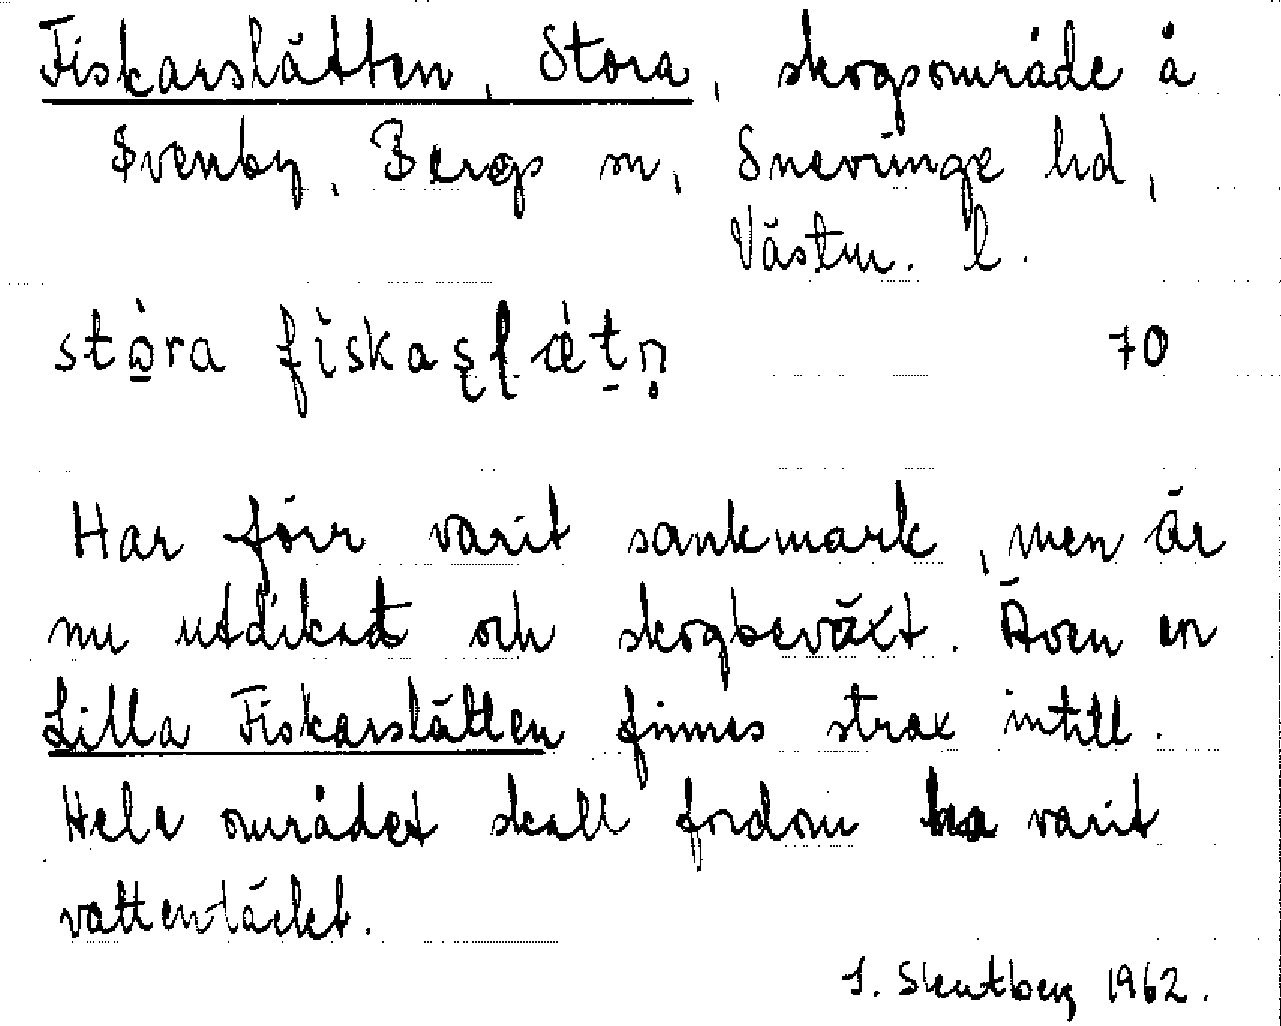 Fiskarslätten, Stora, skogsområde å
Svenby, Bergs sn, Snevringe hd,
Västm. l.
stò̠ra fìskaşļæ̀t̠n̥ 70
Har förr varit sankmark, men är
nu utdikad och skogbeväxt. Även en
Lilla Fiskarslätten finnes strax intill.
Hela området skall fordom ha varit
vattentäckt.
1962.